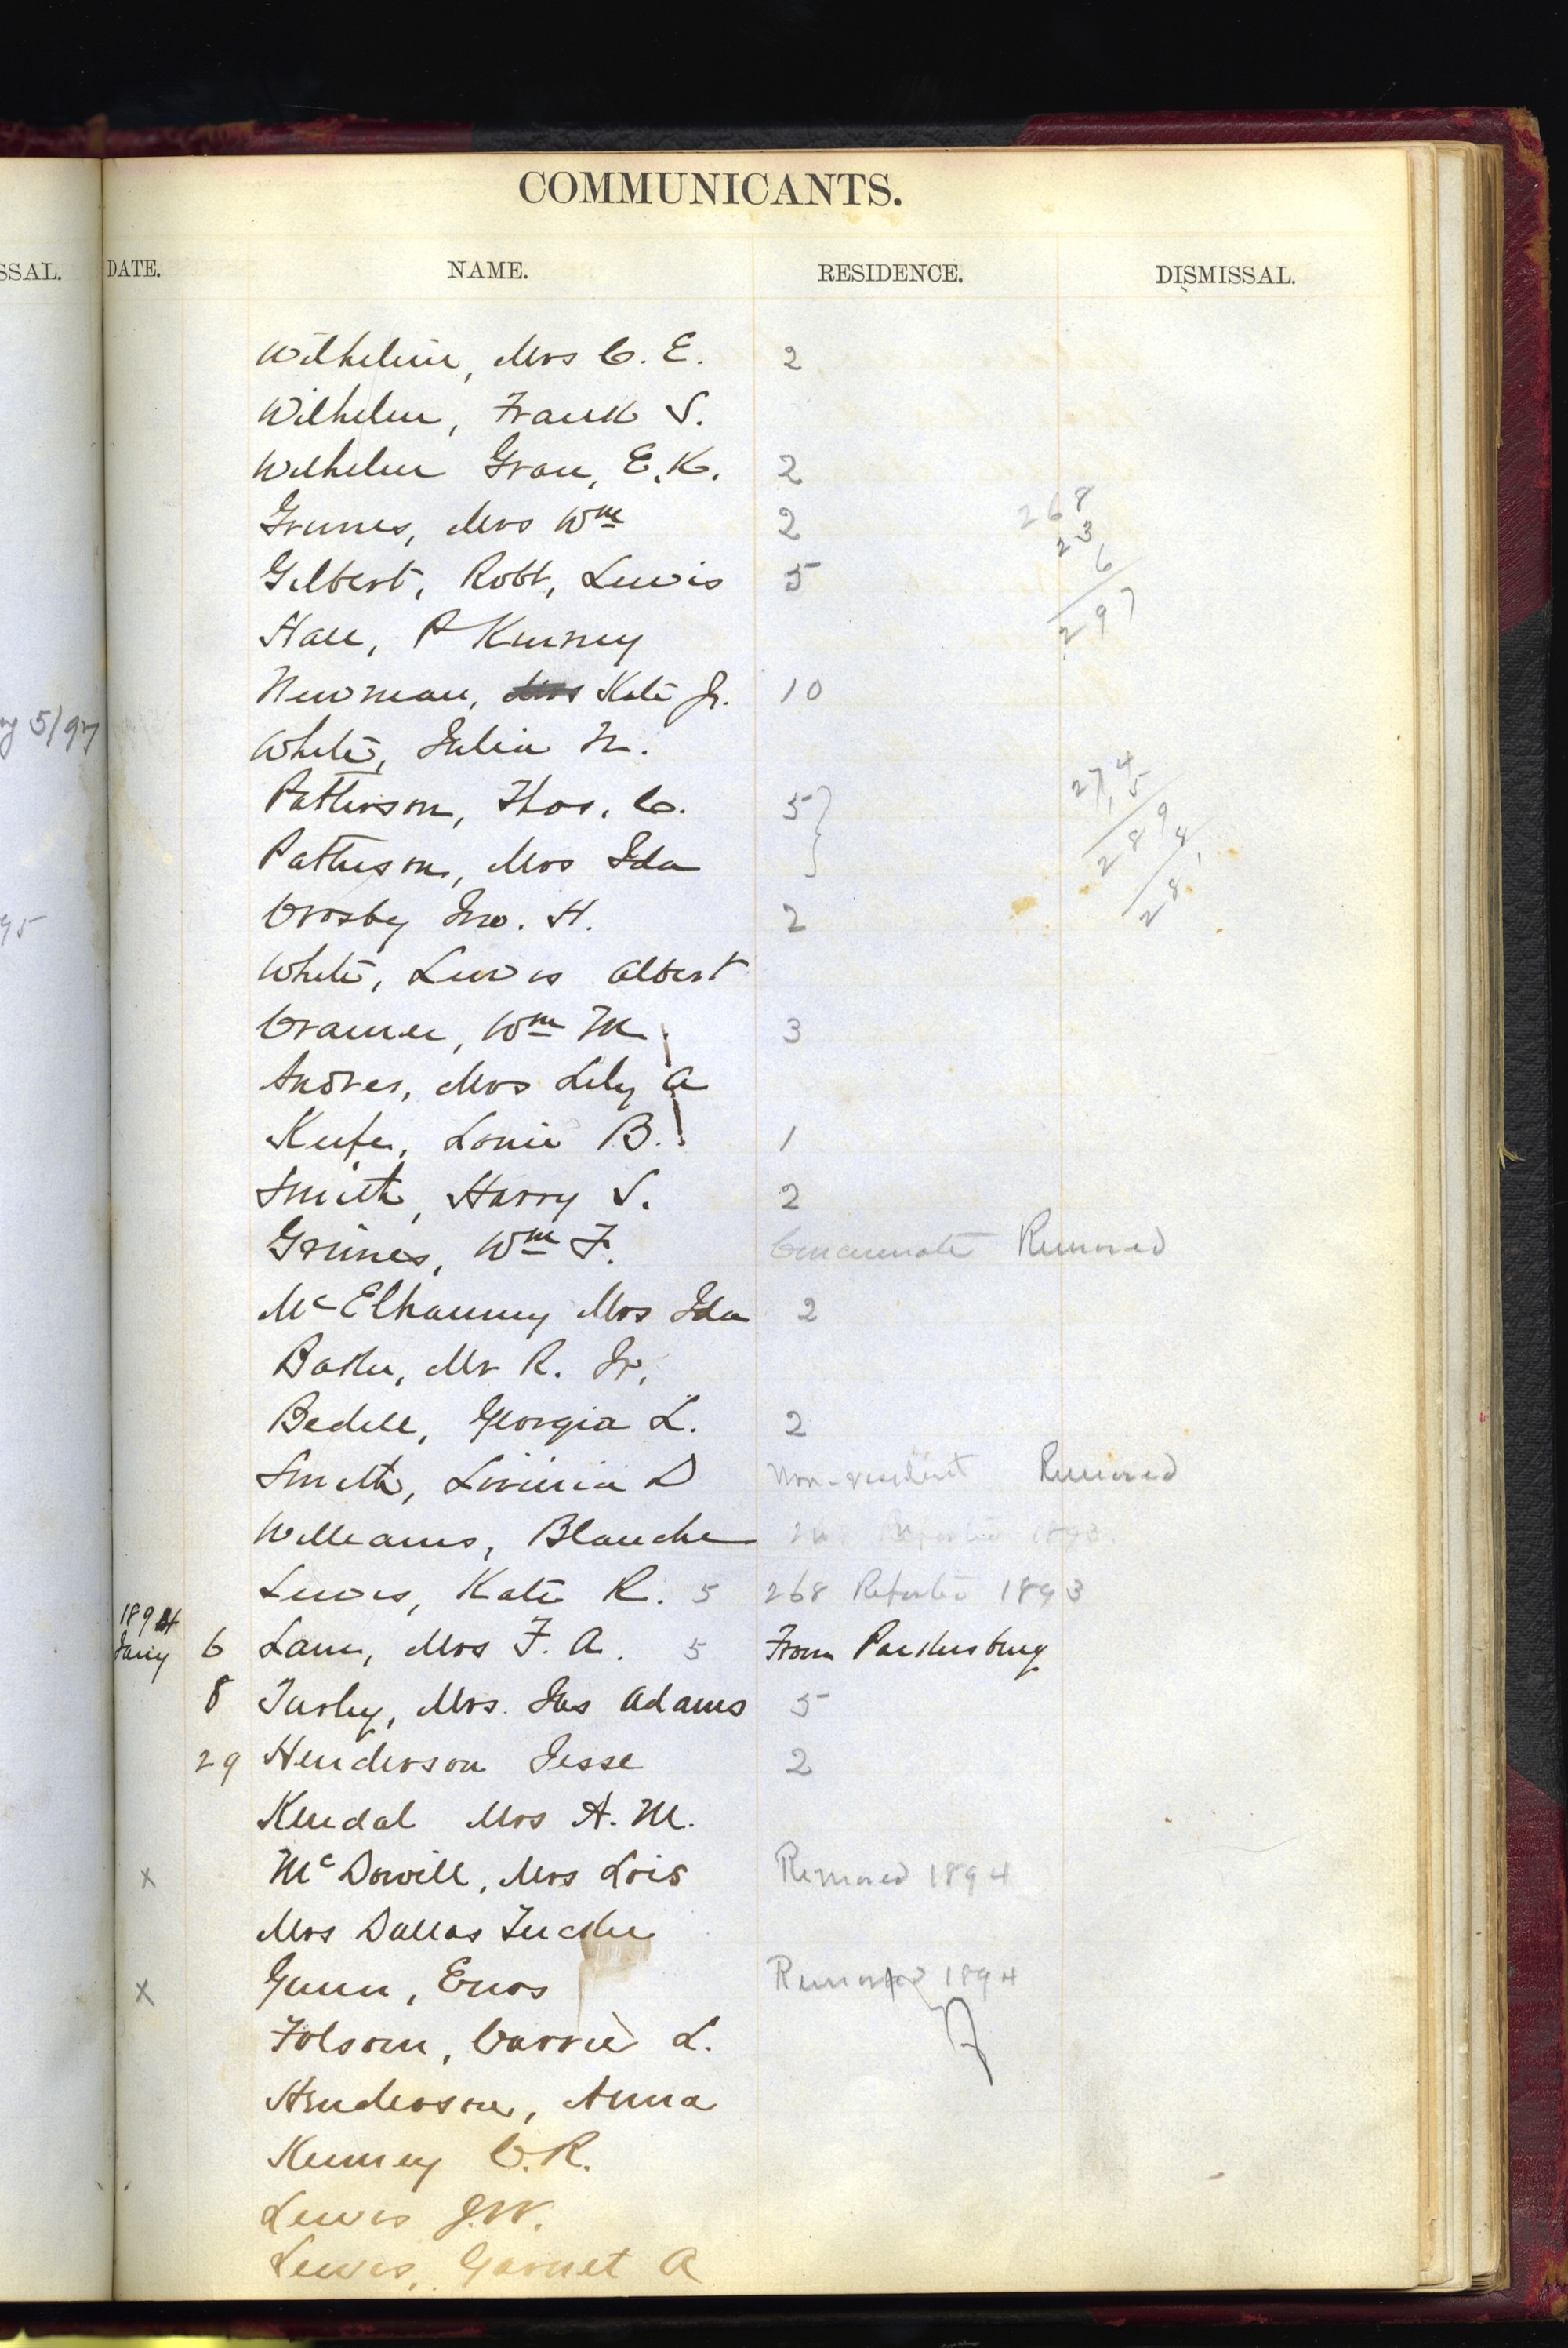 COMMUNICANTS.
SSAL. DATE. NAME. RESIDENCE. DISMISSAL.
Wilhelm, Mrs C. E. 2
Wilhelm, Frank S.
Wilhelm E. K. 2
Grimes, Mrs Wm 2
268
23
6
297
Gilbert, Robt, Lewis 5
Hall, P Kinney
Newman, Mrs Kate Jr. 10
5/97
White, Julia M.
Patterson, Thos. C. 5
274
5
289
Patterson, Mrs Ida
Crosby Jno. H. 2
95
White, Lewis Albert
Cramer, Wm M. 3
Andres, Mrs Lily A
Keefer, Louie B. 1
Smith, Harry S. 2
Grimes, Wm F. Cincinnati Removed
McElhanny Mrs Ida 2
Baker, Mr R. Jr.
Bedell, Georgia L. 2
Smith, Lavinia D Non-resident Removed
Williams, Blanche Reported 1893
Lewis, Kate R. 5 268 Reported 1893
1894
Jany 6 Lane, Mrs F. A. 5 From Parkersburg
8 Turley, Mrs. Jas Adams 5
29 Henderson Jesse 2
Kendal Mrs A. M.
x McDowell, Mrs Lois Removed 1894
Mrs Dallas Tucker
x Gunn, Enos Removed 1894
Folsom, Carrie L.
Henderson, Anna
Kinney C. R.
Lewis J. W.
Lewis, Garnet A